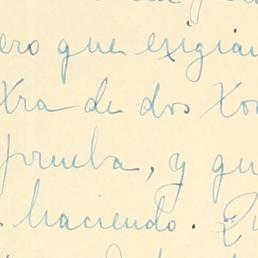 ero que exigían
xtra de dos Xo
prueba, y qu
haciendo.